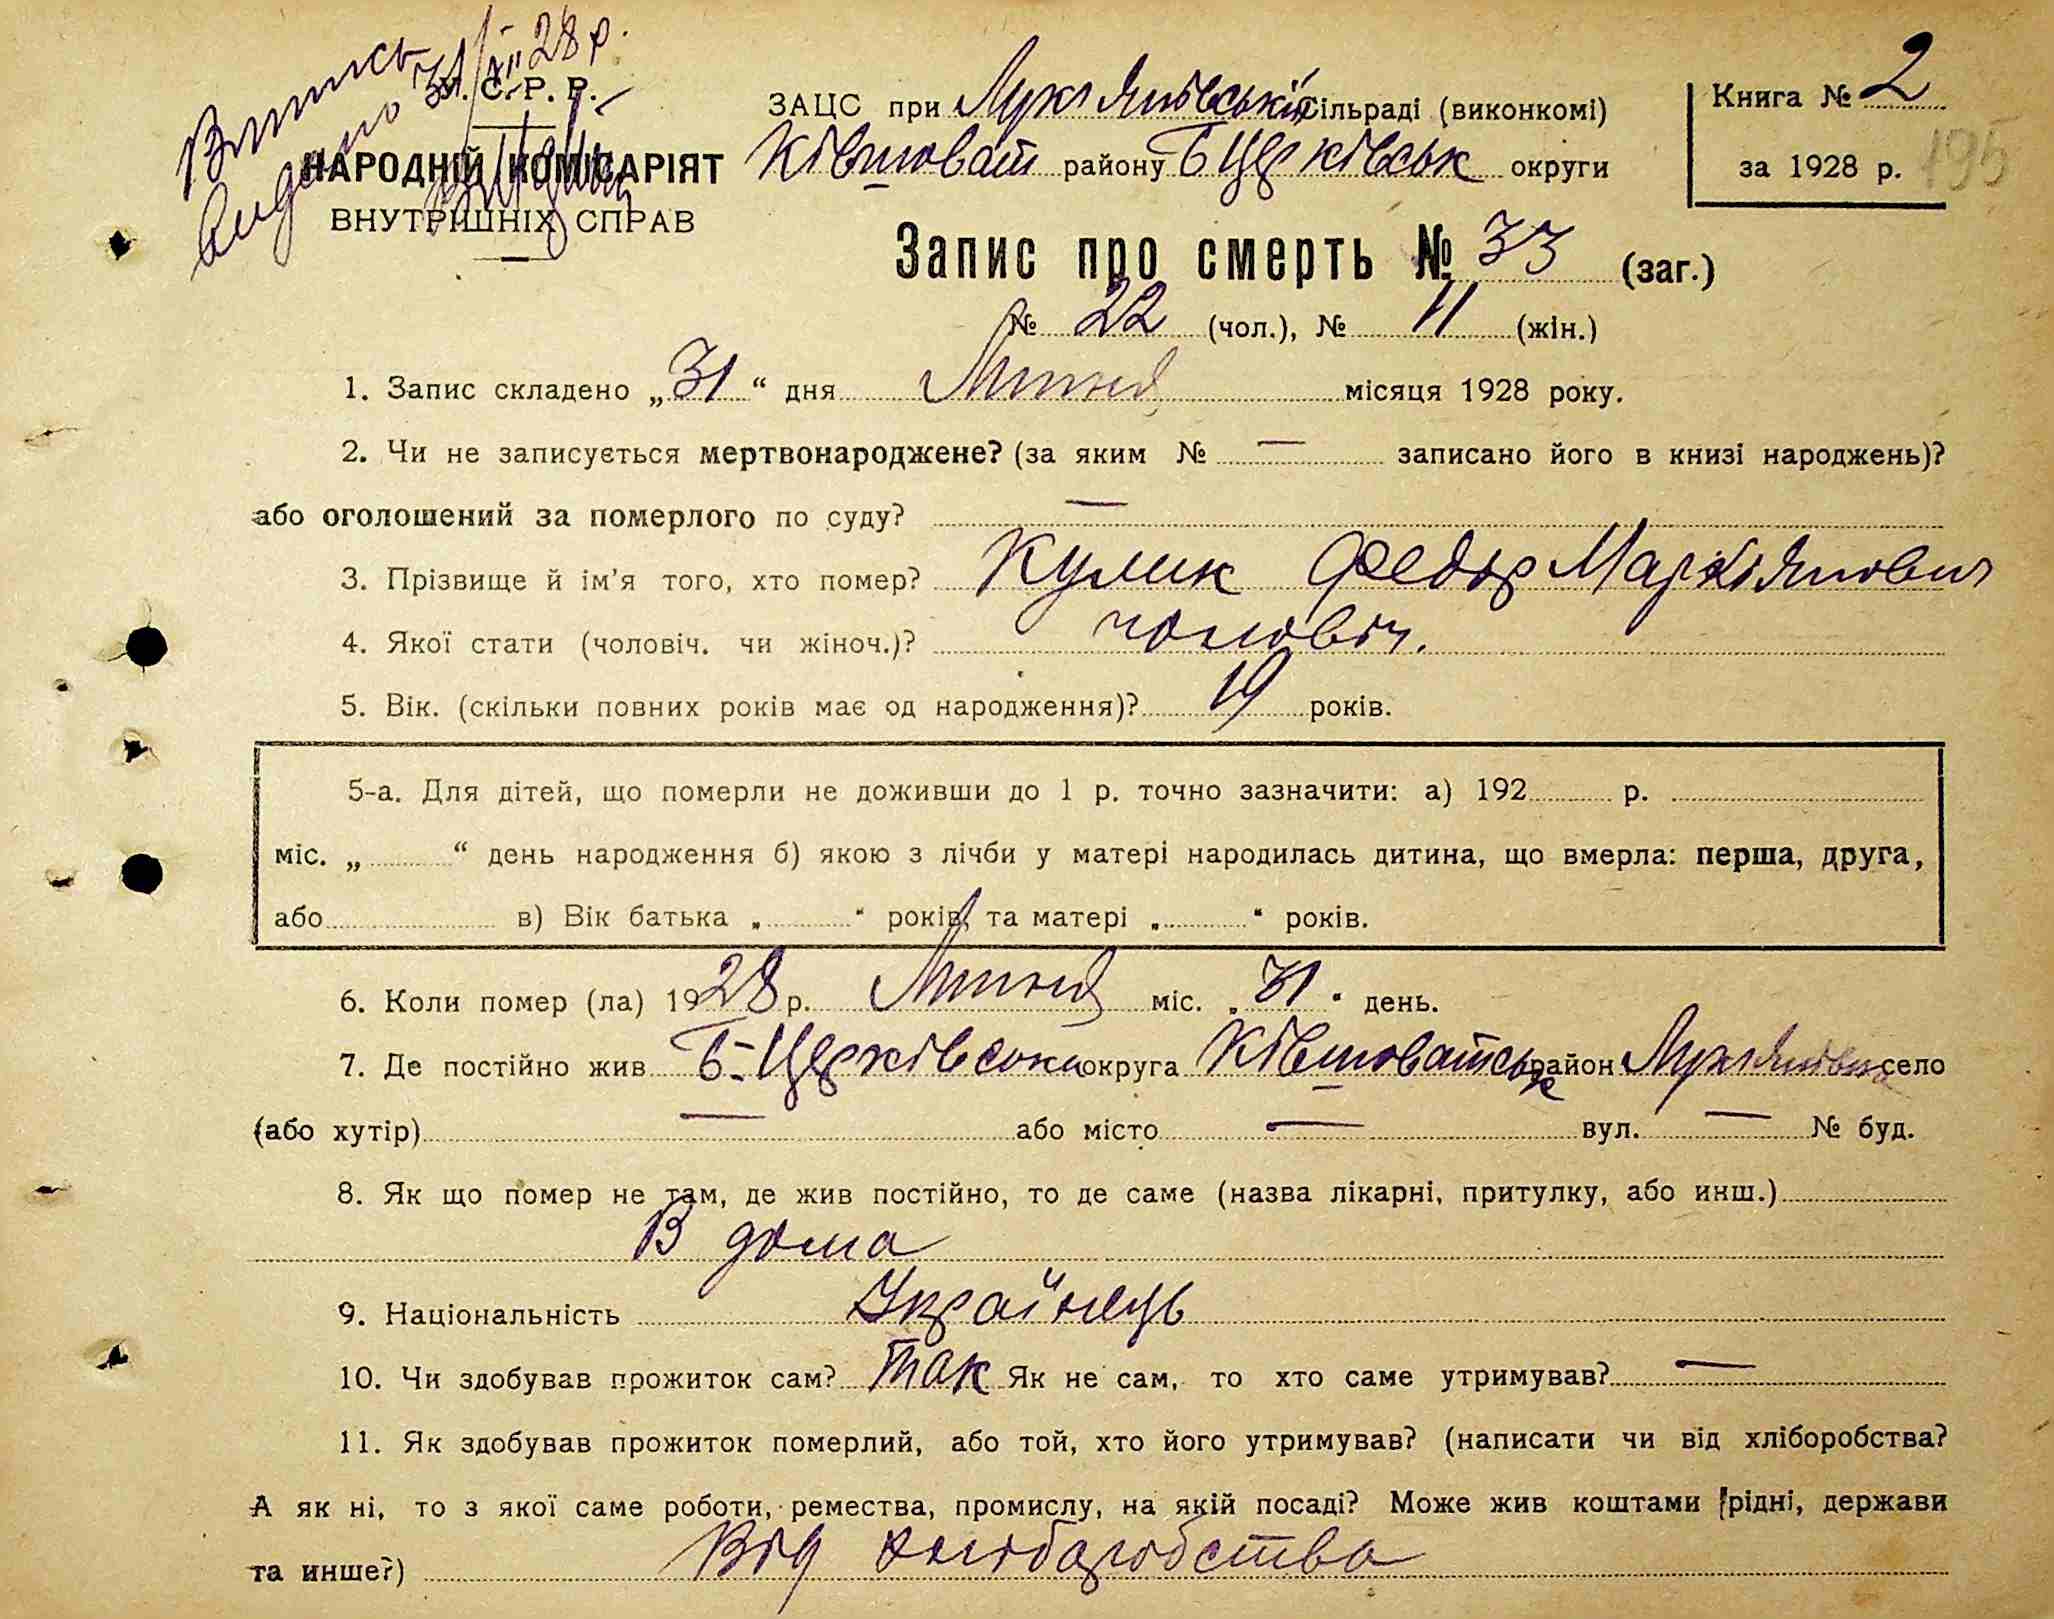 Витись
видано 31/XII 28 р.
У. С. Р. Р.
НАРОДНІЙ КОМІСАРІЯТ
ВНУТРІШНІХ СПРАВ
ЗАЦС при Лук'янівській сільраді (виконкомі)
Ківшоват району Б Церківськ округи
Книга № 2
за 1928 р. 195
Запис про смерть № 33 (заг.)
№ 22 (чол.), № 11 (жін.)
1. Запис складено „31“ дня Липня місяця 1928 року.
2. Чи не записується мертвонароджене? (за яким № — записано його в книзі народжень)?
або оголошений за померлого по суду? —
3. Прізвище й ім'я того, хто помер? Кулик Федор Маркіянович
4. Якої стати (чоловіч. чи жіноч.)? чоловіч.
5. Вік. (скільки повних років має од народження)? 19 років.
5-а. Для дітей, що померли не доживши до 1 р. точно зазначити: а) 192 р.
міс. „ “ день народження б) якою з лічби у матері народилась дитина, що вмерла: перша, друга,
або в) Вік батька „ “ років, та матері „ “ років.
6. Коли помер (ла) 1928 р. Липня міс. „31“ день.
7. Де постійно жив Б-Церківська округа Ківшоватськ район Лук'янівка село
(або хутір) — або місто — вул. — № буд.
8. Як що помер не там, де жив постійно, то де саме (назва лікарні, притулку, або инш.)
В дома
9. Національність Українець
10. Чи здобував прожиток сам? Так Як не сам, то хто саме утримував? —
11. Як здобував прожиток померлий, або той, хто його утримував? (написати чи від хліборобства?
А як ні, то з якої саме роботи, ремества, промислу, на якій посаді? Може жив коштами рідні, держави
та инше?) Від хлібаробства